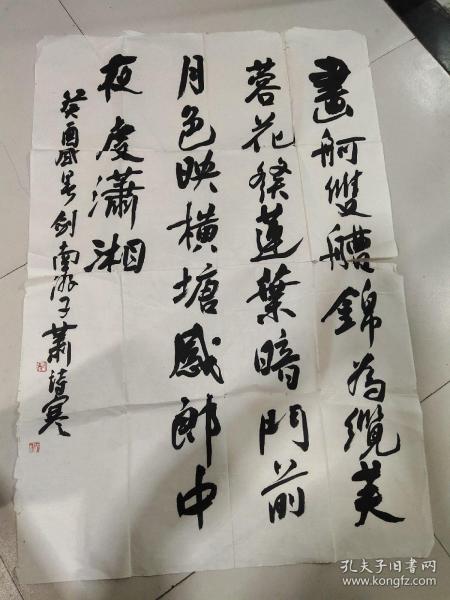 畫舸雙艚錦為纜芙
蓉花發蓮葉暗門前
月色映橫塘感郎中
夜度瀟湘
癸酉盛暑劍南游子蕭詩寒
孔夫子旧书网
www.kongfz.com